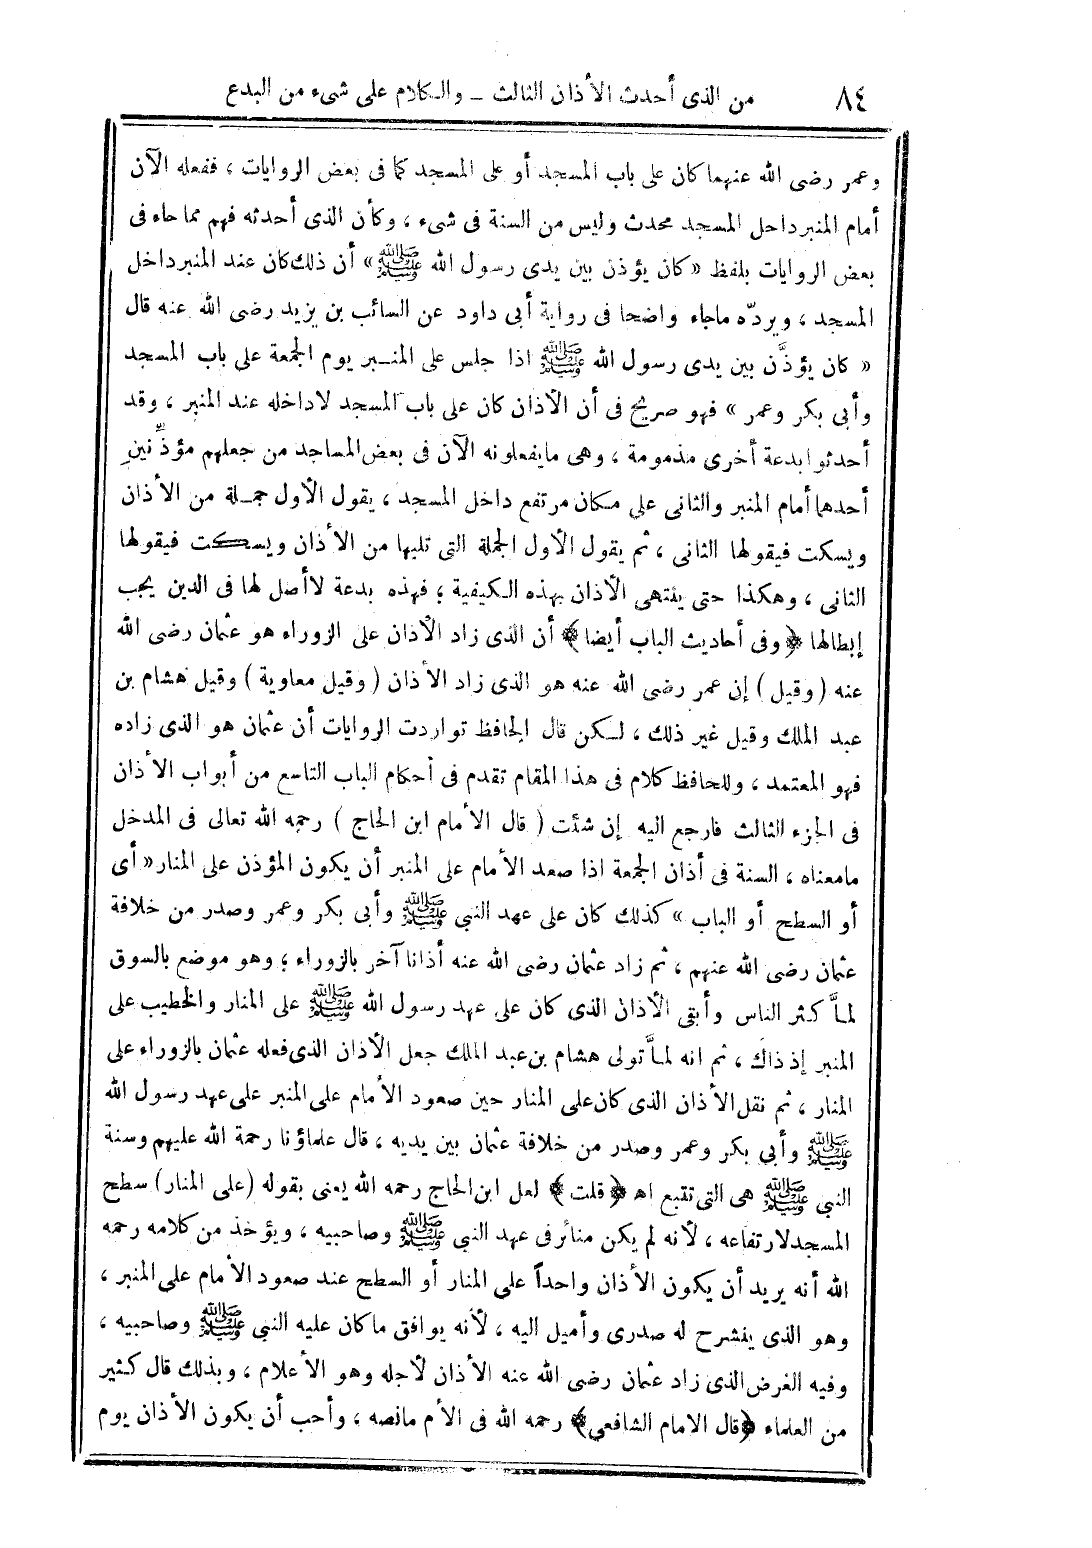 ٨٤ من الذى أحدث الأذان الثالث ــ والكلام على شىء من البدع
وعمر رضى الله عنهما كان على باب المسجد أو على المسجد كما فى بعض الروايات ، ففعله الآن
أمام المنبر داخل المسجد محدث وليس من السنة فى شىء ، وكأن الذى أحدثه فهم مما جاء فى
بعض الروايات بلفظ « كان يؤذن بين يدى رسول الله ﷺ » أن ذلك كان عند المنبر داخل
المسجد ، ويردّه ماجاء واضحا فى رواية أبى داود عن السائب بن يزيد رضى الله عنه قال
« كان يؤذَّن بين يدى رسول الله ﷺ اذا جلس على المنبر يوم الجمعة على باب المسجد
وأبى بكر وعمر » فهو صريح فى أن الأذان كان على باب المسجد لاداخله عند المنبر ، وقد
أحدثوا بدعة أخرى مذمومة ، وهى مايفعلونه الآن فى بعض المساجد من جعلهم مؤذِّنينِ
أحدهما أمام المنبر والثانى على مكان مرتفع داخل المسجد ، يقول الأول جملة من الأذان
ويسكت فيقولها الثانى ، ثم يقول الأول الجملة التى تليها من الأذان ويسكت فيقولها
الثانى ، وهكذا حتى ينتهى الأذان بهذه الكيفية ؛ فهذه بدعة لاأصل لها فى الدين يجب
إبطالها ﴿ وفى أحاديث الباب أيضا ﴾ أن الذى زاد الأذان على الزوراء هو عثمان رضى الله
عنه ( وقيل ) إن عمر رضى الله عنه هو الذى زاد الأذان ( وقيل معاوية ) وقيل هشام بن
عبد الملك وقيل غير ذلك ، لكن قال الحافظ تواردت الروايات أن عثمان هو الذى زاده
فهو المعتمد ، وللحافظ كلام فى هذا المقام تقدم فى أحكام الباب التاسع من أبواب الأذان
فى الجزء الثالث فارجع اليه إن شئت ( قال الأمام ابن الحاج ) رحمه الله تعالى فى المدخل
مامعناه ، السنة فى أذان الجمعة اذا صعد الأمام على المنبر أن يكون المؤذن على المنار « أى
أو السطح أو الباب » كذلك كان على عهد النبى ﷺ وأبى بكر وعمر وصدر من خلافة
عثمان رضى الله عنهم ، ثم زاد عثمان رضى الله عنه أذانا آخر بالزوراء ؛ وهو موضع بالسوق
لمـَّا كثر الناس وأبقى الأذان الذى كان على عهد رسول الله ﷺ على المنار والخطيب على
المنبر إذ ذاك ، ثم انه لمـَّا تولى هشام بن عبد الملك جعل الأذان الذى فعله عثمان بالزوراء على
المنار ، ثم نقل الأذان الذى كان على المنار حين صعود الأمام على المنبر على عهد رسول الله
ﷺ وأبى بكر وعمر وصدر من خلافة عثمان بين يديه ، قال علماؤنا رحمة الله عليهم وسنة
النبى ﷺ هى التى تتبع اه ﴿ قلت ﴾ لعل ابن الحاج رحمه الله يعنى بقوله (على المنار) سطح
المسجد لارتفاعه ، لأنه لم يكن منائر فى عهد النبى ﷺ وصاحبيه ، ويؤخذ من كلامه رحمه
الله أنه يريد أن يكون الأذان واحداً على المنار أو السطح عند صعود الأمام على المنبر ،
وهو الذى ينشرح له صدرى وأميل اليه ، لأنه يوافق ماكان عليه النبى ﷺ وصاحبيه ،
وفيه الغرض الذى زاد عثمان رضى الله عنه الأذان لأجله وهو الأعلام ، وبذلك قال كثير
من العلماء ﴿ قال الامام الشافعى ﴾ رحمه الله فى الأم مانصه ، وأحب أن يكون الأذان يوم